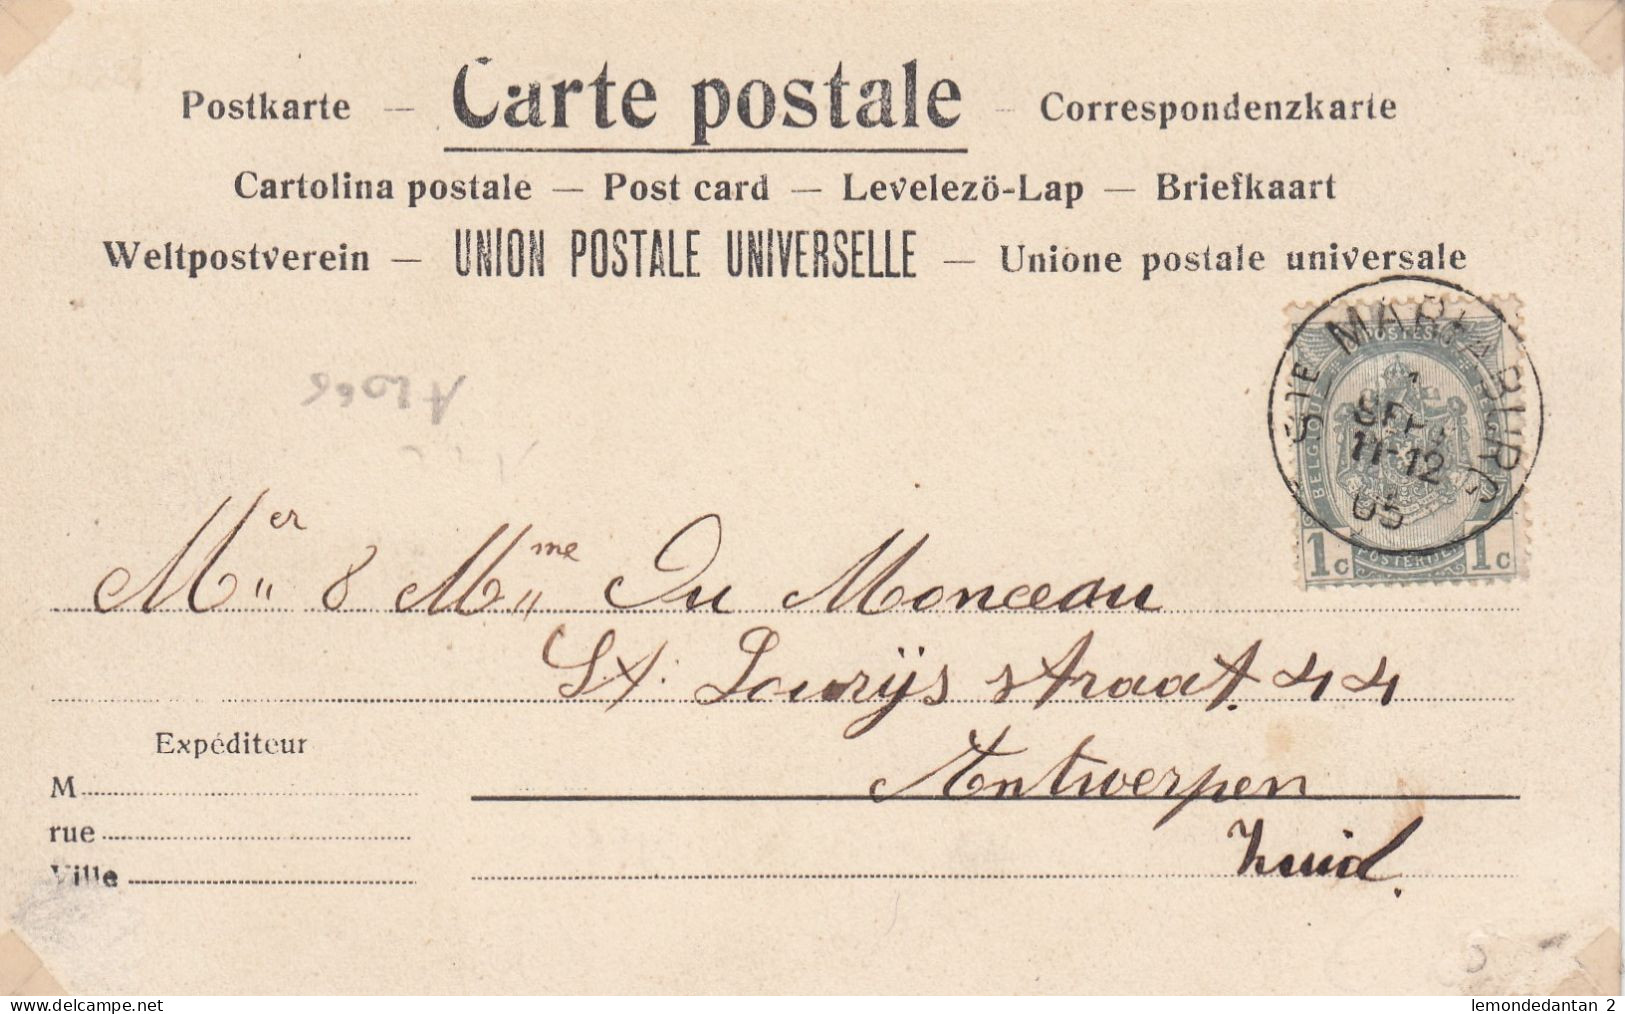 Postkarte — Carte postale — Correspondenzkarte
Cartolina postale — Post card — Levelezö-Lap — Briefkaart
Weltpostverein — UNION POSTALE UNIVERSELLE — Unione postale universale
STE MARIABURG
1
SEPT
11-12
05
POSTES
BELGIQUE BELGIË
1c POSTERIJEN 1c
Mer & Mme Du Monceau
St. Lourijs straat. 44
Antwerpen
Zuid.
Expéditeur
M
rue
Ville
lemondedantan 2